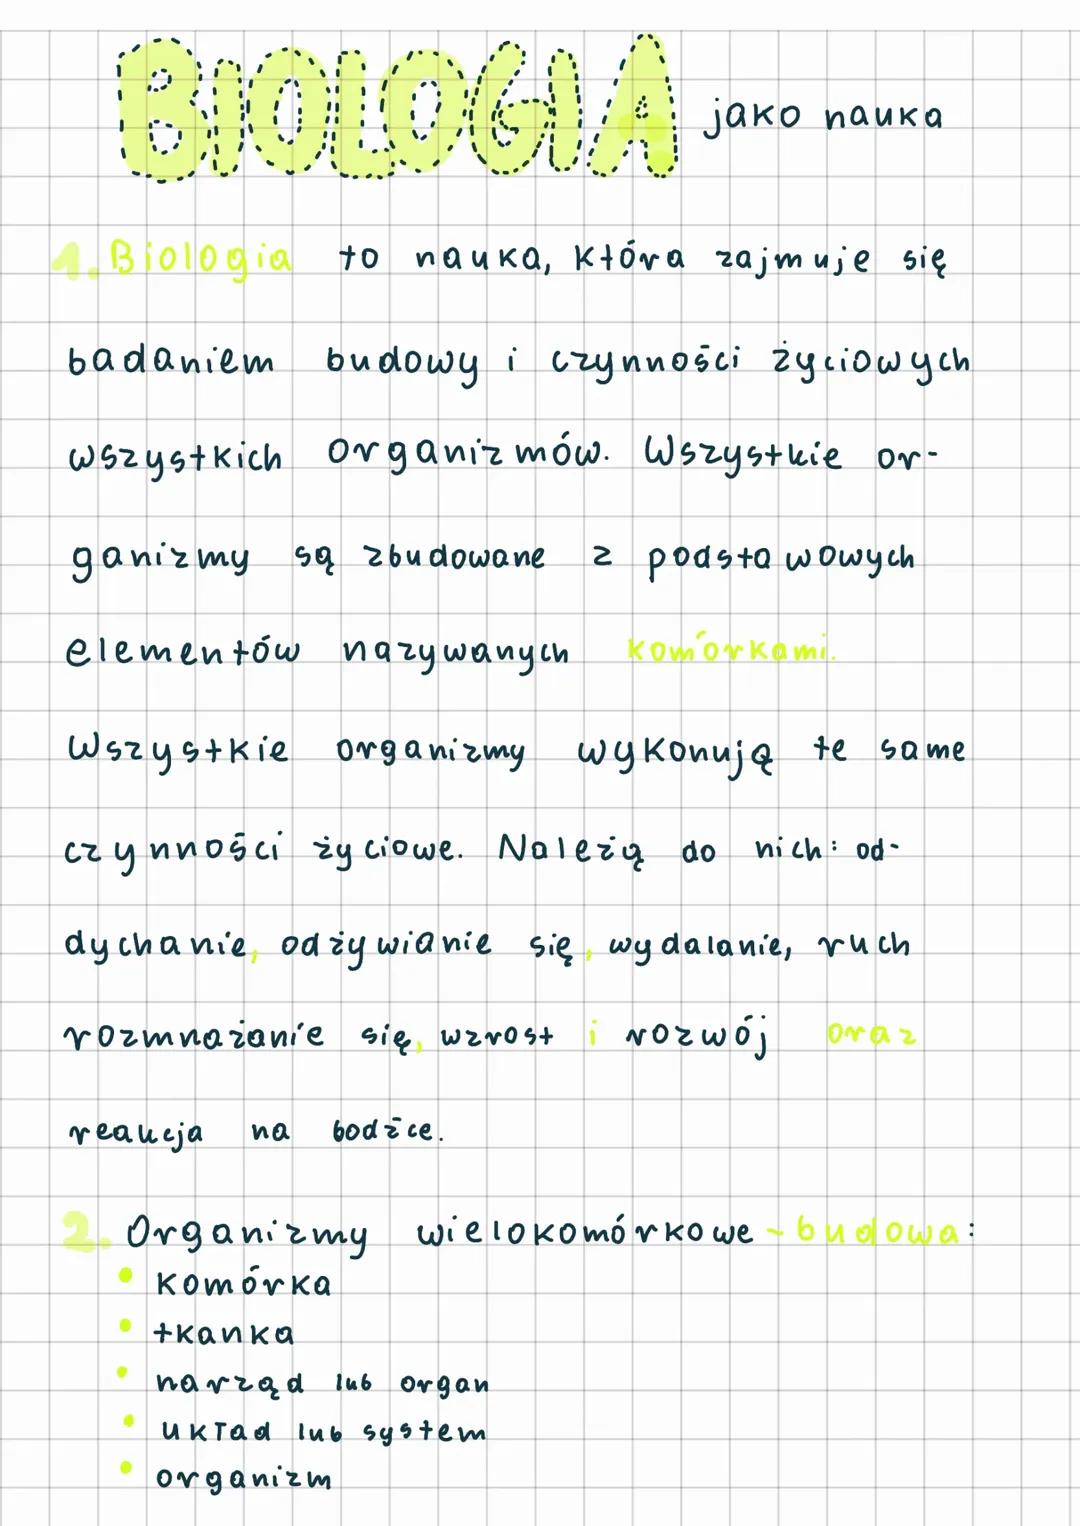 BIOLOGIA jako nauka
1. Biologia to nauka, która zajmuje się
badaniem budowy i czynności życiowych
wszystkich organizmów. Wszystkie or-
ganizmy są zbudowane z podstawowych
elementów nazywanych komórkami.
Wszystkie organizmy wykonują te same
czynności życiowe. Należą do nich: od-
dychanie, odżywianie się, wydalanie, ruch
rozmnażanie się, wzrost i rozwój oraz
reakcja na bodźce.
2. Organizmy wielokomórkowe - budowa:
• komórka
• tkanka
• narząd lub organ
• układ lub system
• organizm